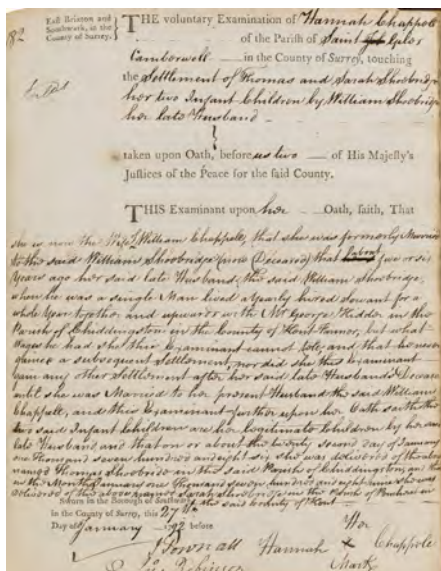 182
East Brixton and
Southwark, in the
County of Surrey.
THE voluntary Examination of Hannah Chappole
of the Parish of Saint Giles
Camberwell in the County of Surrey, touching
the Settlement of Thomas and Sarah Shoobridge
her two Infant Children by William Shoobridge
her late Husband
taken upon Oath, before us two of His Majesty's
Justices of the Peace for the said County.
THIS Examinant upon her Oath, saith, That
she is now the Wife of William Chappole, that she was formerly Married
to the said William Shoobridge (now Deceased) that about five or six
Years ago her said late Husband, the said William Shoobridge,
when he was a single Man lived a Yearly hired Servant for a
whole Year together and upwards with Mr George Hidder in the
Parish of Chiddingstone in the County of Kent Farmer, but what
Wages he had She this Examinant cannot tell, and that he never
gained a subsequent Settlement, nor did she this Examinant
gain any other Settlement after her said late Husbands Decease
until she was Married to her present Husband the said William
Chappell, and this Examinant further upon her Oath saith that
her said Infant Children are her legitimate Children by her said
late Husband and that on or about the twenty second day of January
one Thousand seven hundred and eighty six she was delivered of the above
named Thomas Shoobridge in the said Parish of Chiddingstone, and that
in the Month of January one Thousand seven hundred and eighty nine she was
delivered of the above named Sarah Shoobridge in the Parish of
Sworn in the Borough of Southwark in the said County of Kent
in the County of Surrey, this 27th
Day of January 1792 before
J Townall Hannah Her X Mark Chappole
Robinson